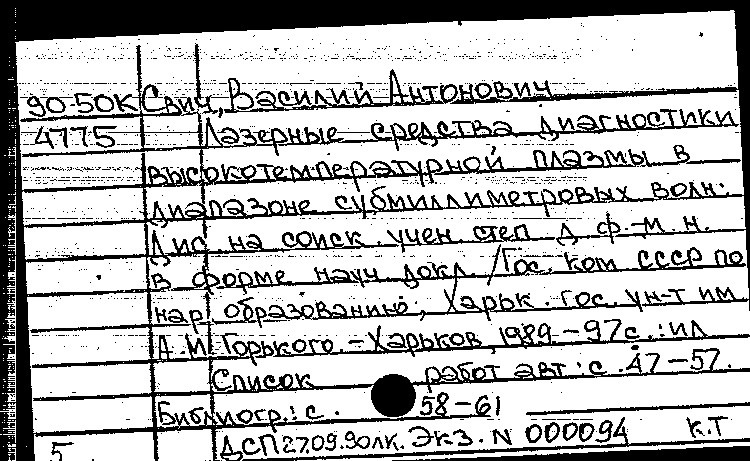 90-50К Свич, Василий Антонович
4775 Лазерные средства диагностики
высокотемпературной плазмы в
диапазоне субмиллиметровых волн:
Дис. на соиск. учен. степ. д. ф.-м. н.
в форме науч. докл. /Гос. ком. СССР по
нар. образованию, Харьк. гос. ун-т им.
А.М. Горького. - Харьков, 1989. - 97с.: ил.
Список работ авт.: с. 47-57.
Библиогр.: с. 58-61
5 ДСП 27.09.90лк. Экз. N 000094 К.Т